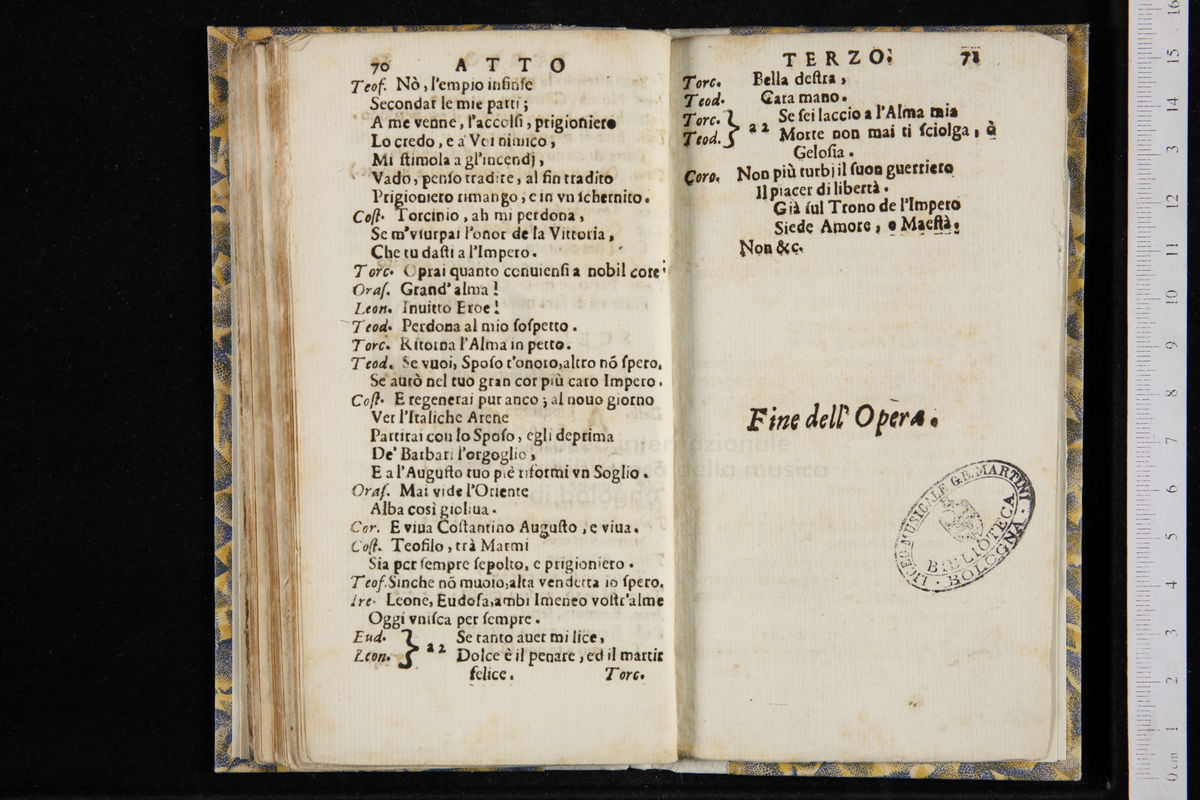 70 ATTO
Teof. Nò, l'empio infinſe
Secondar le mie parti;
A me venne, l'accolſi, prigioniero
Lo credo, e a Voi nimico,
Mi ſtimola a gl'incendj,
Vado, penſo tradire, al fin tradito
Prigioniero rimango, e in vn ſchernito.
Coſt. Torcinio, ah mi perdona,
Se m'vſurpai l'onor de la Vittoria,
Che tu daſti a l'Impero.
Torc. Oprai quanto conuienſi a nobil core
Oraſ. Grand'alma!
Leon. Inuitto Eroe!
Teod. Perdona al mio ſoſpetto.
Torc. Ritorna l'Alma in petto.
Teod. Se vuoi, Spoſo t'onoro, altro nõ ſpero,
Se aurò nel tuo gran cor più caro Impero.
Coſt. E regnerai pur anco; al nouo giorno
Ver l'Italiche Arene
Partirai con lo Spoſo, egli deprima
De' Barbari l'orgoglio,
E a l'Auguſto tuo piè riformi vn Soglio.
Oraſ. Mai vide l'Oriente
Alba così gioliua.
Cor. E viua Coſtantino Auguſto, e viua.
Coſt. Teofilo, trà Marmi
Sia per ſempre ſepolto, e prigioniero.
Teof. Sinche nõ muoio, alta vendetta io ſpero.
Ire. Leone, Eudoſa, ambi Imeneo voſtr'alme
Oggi vniſca per ſempre.
Eud. } a 2 Se tanto auer mi lice,
Leon. Dolce è il penare, ed il martir
felice. Torc.
TERZO. 71
Torc. Bella deſtra,
Teod. Cara mano.
Torc. } a 2 Se ſei laccio a l'Alma mia
Teod. Morte non mai ti ſciolga, ò
Geloſia.
Coro. Non più turbj il ſuon guerriero
Il piacer di libertà.
Già ſul Trono de l'Impero
Siede Amore, e Maeſtà.
Non &c.
Fine dell' Opera.
MUSEO MUSICALE G.B. MARTINI
BIBLIOTECA
BOLOGNA
museo internazionale
della musica
di bologna
0 cm 1 2 3 4 5 6 7 8 9 10 11 12 3 14 15 16